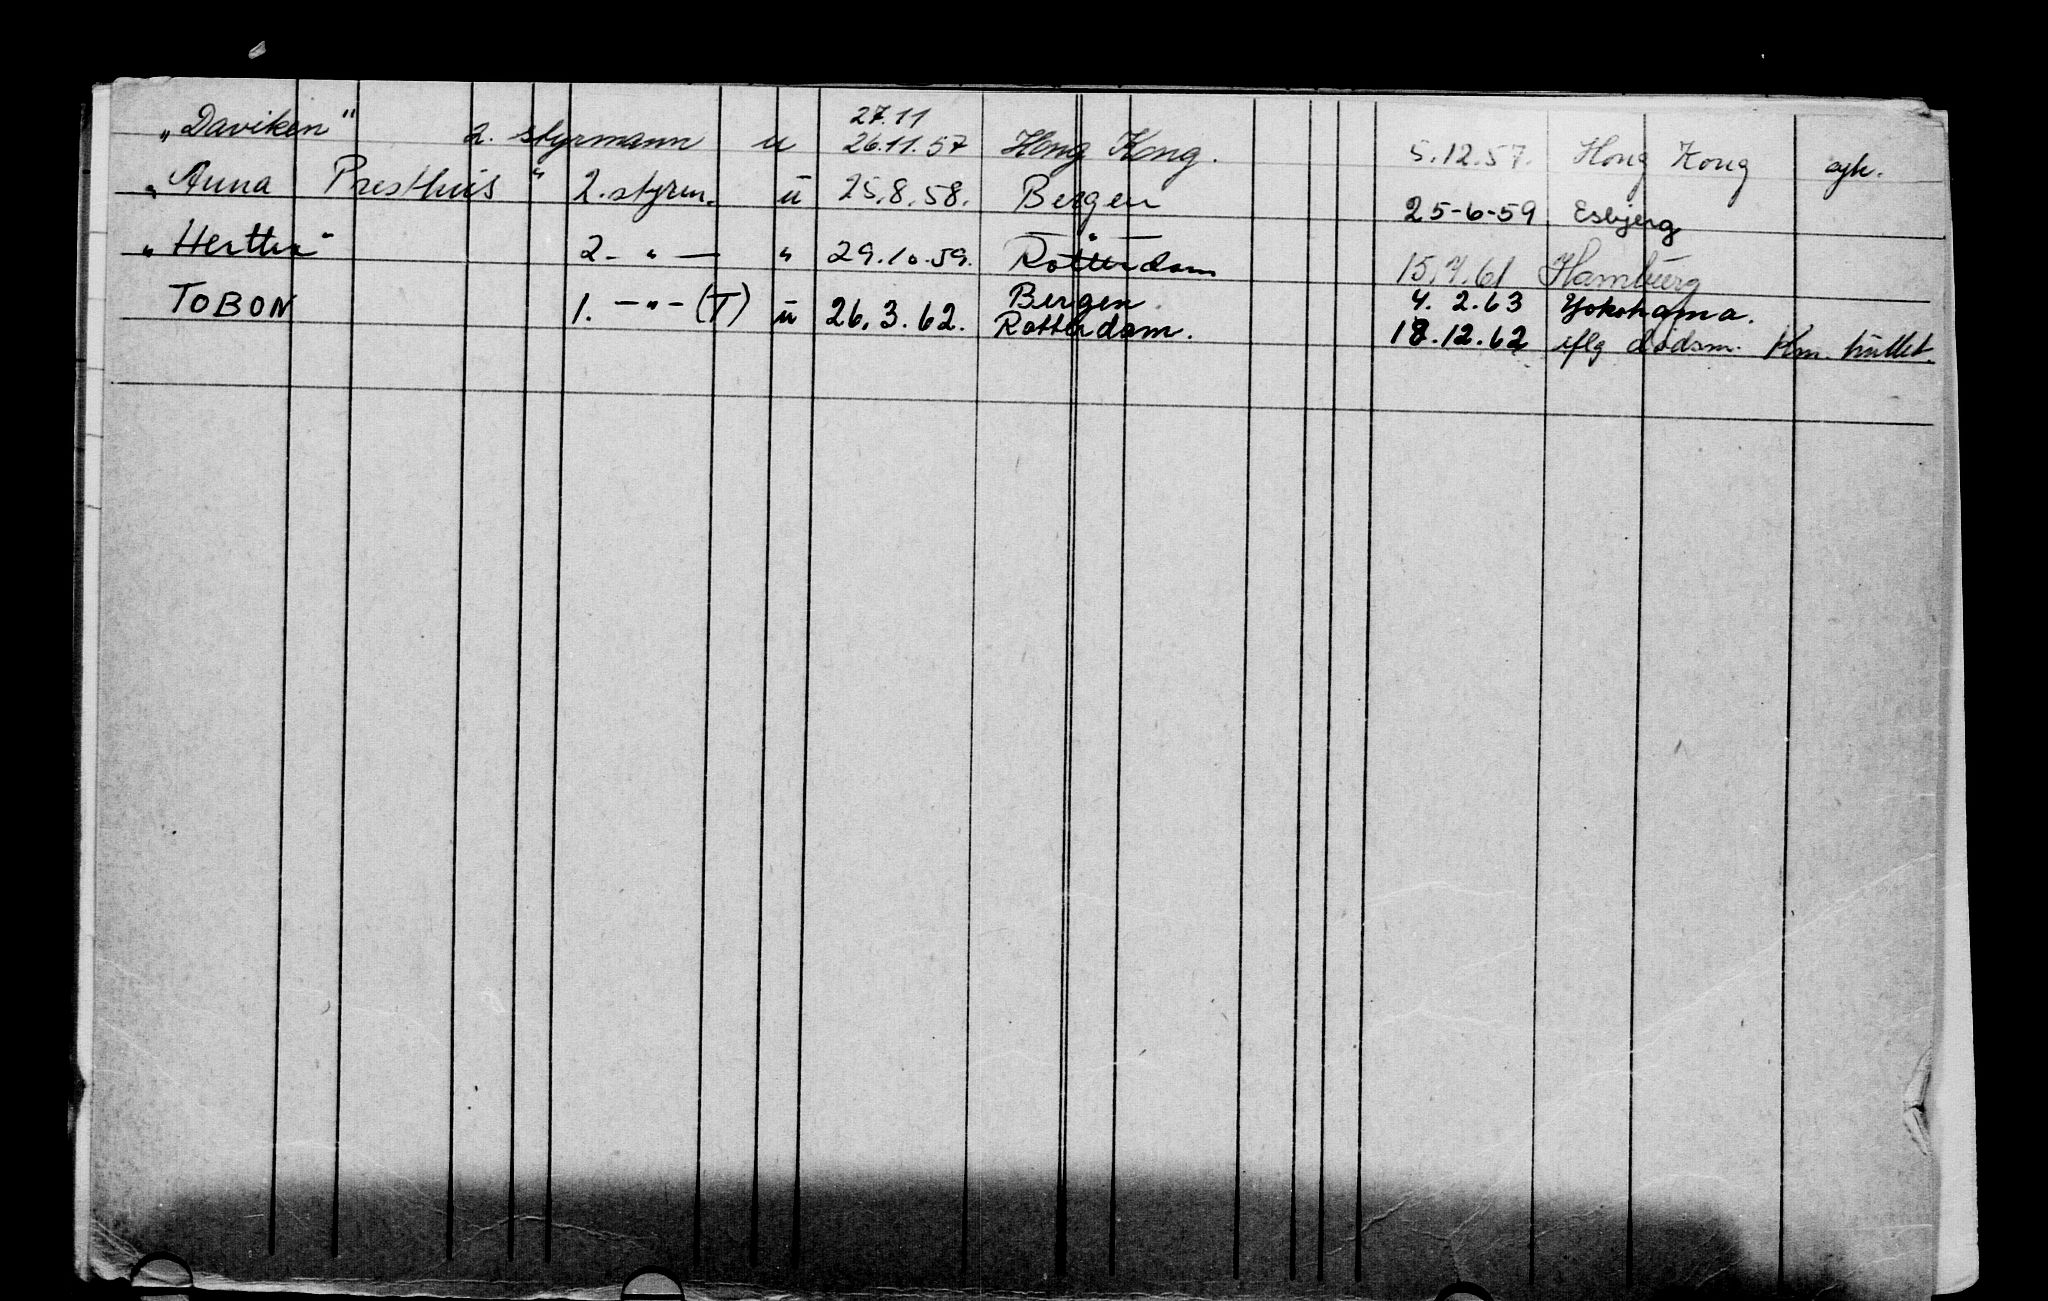 27.11
„Daviken" 2. styrmann u 26.11.57 Hong Kong. 5.12.57. Hong Kong syk.
„Anna Presthus" 2. styrm. u 25.8.58. Bergen 25-6-59 Esbjerg
„Hertha" 2. - " — " 29.10.59. Rotterdam 15.7.61 Hamburg
TOBON 1. - " - (T) u 26.3.62. Bergen 4. 2.63 Yokohama.
Rotterdam. 18.12.62 iflg dødsm. Km.